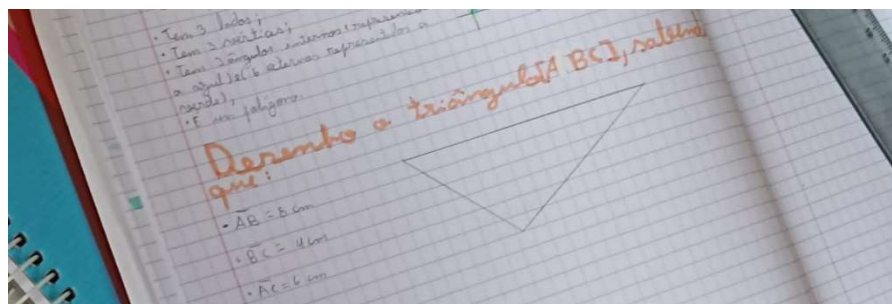 • Tem 3 lados;
• Tem 3 vértias;
• Tem 3 ângulos internos (represent
a azul) e (6 externos representados a
verde);
• É um polígono.
Desenho o triângulo [A BC], sabend
que:
• AB = 5 cm
• BC = 4 cm
• AC = 6 cm